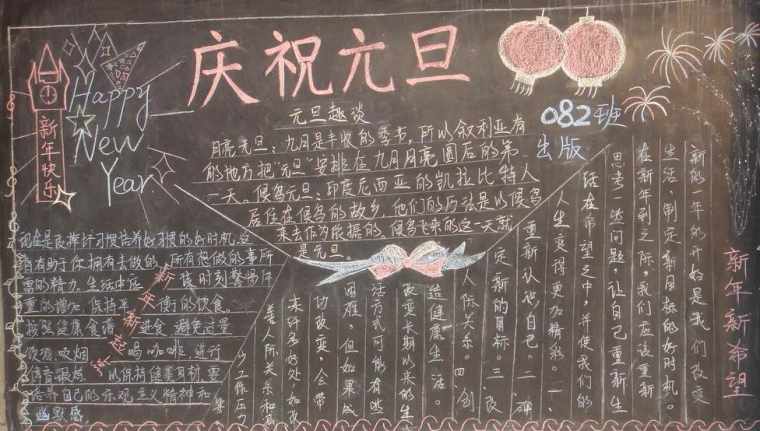 庆祝元旦
Happy
New
Year
新年快乐
元旦趣谈
月亮元旦：九月是丰收的季节，所以叙利亚有
的地方把"元旦"安排在九月月亮圆后的第
一天。候鸟元旦：印度尼西亚的凯拉比特人
居住在候鸟的故乡，他们的历法是以候鸟
来去作为依据的，候鸟飞来的这一天就
是元旦。
082班
出版
现在是良择纤习惯培养好习惯的好时机，这
有助于你拥有去做的 所有想做的事所
需的精力。生活中应 该时刻警惕体
重的增加 保持平 衡的饮食。
按照健康食谱 进食 避免过量
饮酒 吸烟 喝咖啡 进行
体育锻炼 以保持健康身材 要
培养自己的乐观主义精神和
幽默感。
新的一年的开始是我们改变
生活 制定新目标的好时机。
在新年到之际，我们应该重新
思考一些问题，让自己重新生
活在希望之中，并使我们的
人生变得更加精彩。一、
重新认识自己。二、确
定新的目标。三、改
人际关系。四、创
造健康生活。
改变长期以来的生
活方式可能有些
困难，但如果成
功改变，会带
来许多好处 如改
善人际关系和
新年新希望